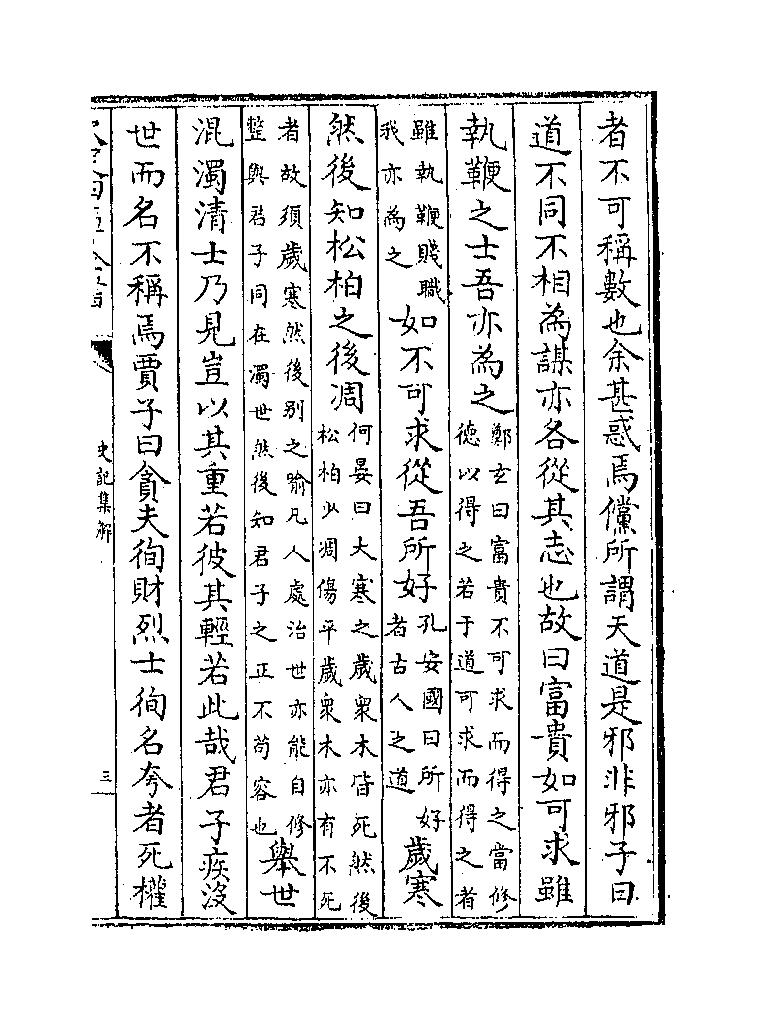 者不可稱數也余甚惑焉儻所謂天道是邪非邪子曰
道不同不相為謀亦各從其志也故曰富貴如可求雖
執鞭之士吾亦為之
鄭玄曰富貴不可求而得之當修
德以得之若于道可求而得之者
雖執鞭賤職
我亦為之
如不可求從吾所好
孔安國曰所好
者古人之道
歲寒
然後知松柏之後凋
何晏曰大寒之歲衆木皆死然後
松柏少凋傷平歲衆木亦有不死
者故須歲寒然後别之喻凡人處治世亦能自修
整與君子同在濁世然後知君子之正不苟容也
舉世
混濁清士乃見豈以其重若彼其輕若此哉君子疾沒
世而名不稱焉賈子曰貪夫徇財烈士徇名夸者死權
史記集解
三